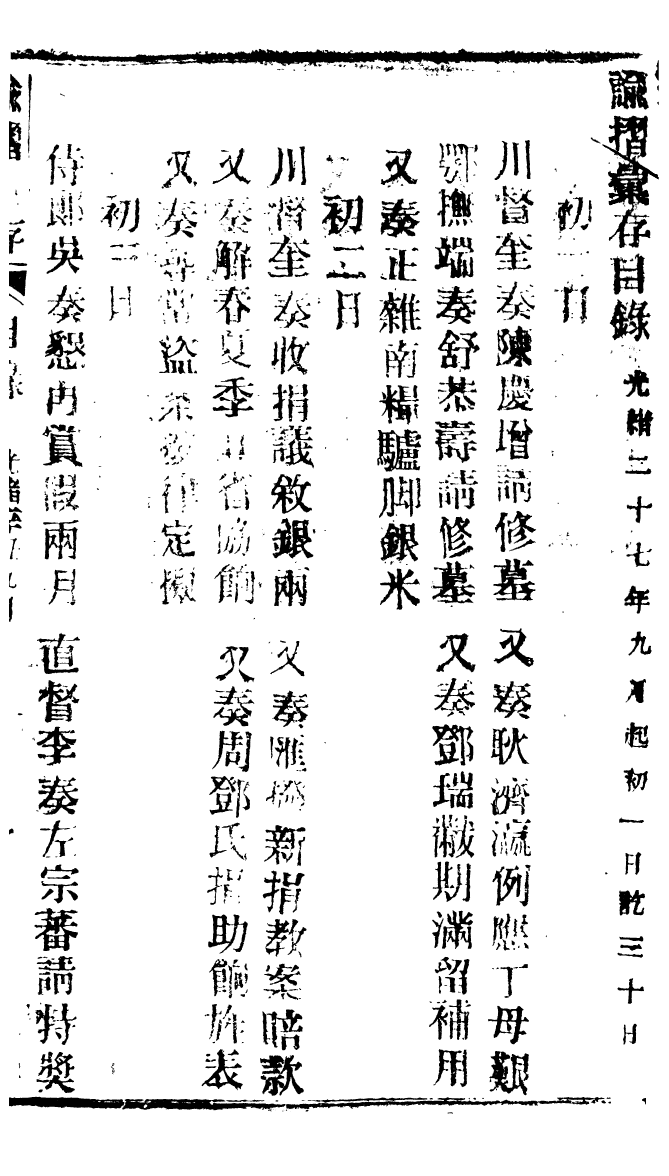 諭摺彙存目錄 光緒二十七年九月起初一日訖三十日
初一日
川督奎奏陳慶增請修墓 又奏耿濟瀛例應丁母艱
鄂撫端奏舒恭壽請修墓 又奏鄧瑞黻期滿留補用
又奏正雜南糧驢脚銀米
初二日
川督奎奏收捐議敘銀兩 又奏匯撥新捐教案賠款
又奏解春夏季 省協餉 又奏周鄧氏捐助餉旌表
又奏尋常盜案 律定擬
初三日
侍郎吳奏懇再賞假兩月 直督李奏左宗蕃請特獎